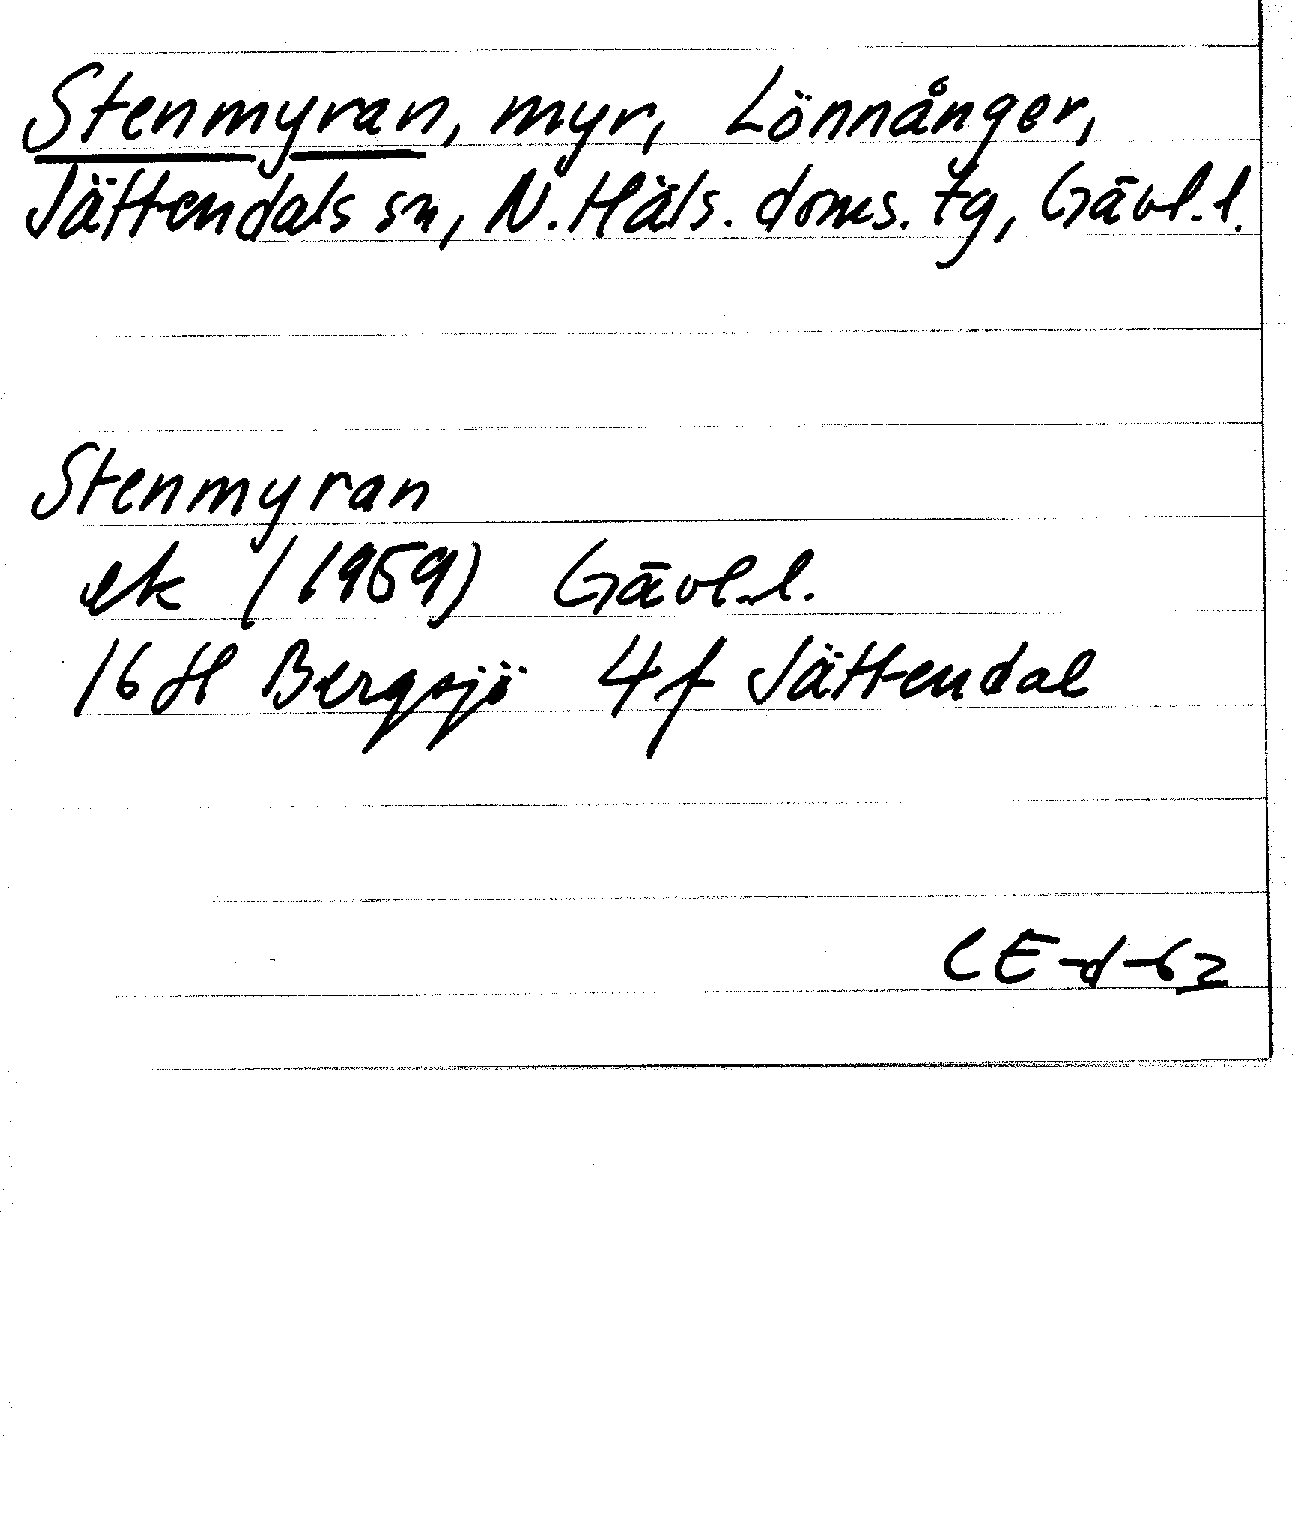 Stenmyran, myr, Lönnånger,
Jättendals sn, N. Häls. doms. tg, Gävl. l.
Stenmyran
ek (1959) Gävl. l.
16 H Bergsjö 4 f Jättendal
CE-d-62